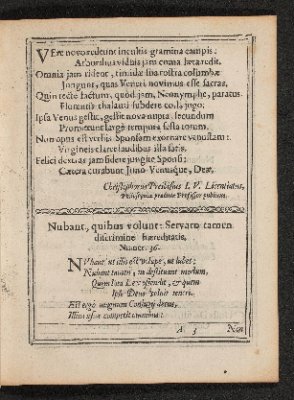 VEre novo redeunt incultis gramina campis:
Arboribus viduis jam coma laeta redit.
Omnia jam rident, timidae sua rostra columbae
Jungunt, quas Veneri novimus esse sacras,
Quin recte factum, quod jam, Neonymphe, paratus
Florentis thalami subdere colla jugo:
Ipsa Venus gestit, gestit nova nupta, secundum
Promittunt large tempora festa torum.
Non opus est verbis Sponsam exornare venustam:
Virgineis claret laudibus illa satis.
Felici dextras jam sidere jungite Sponsi:
Caetera curabunt Juno Venusque, Deae,
Christophorus Preibisius I. V. Licentiatus,
Philosophiae practicae Professor publicus.
Nubant, quibus volunt: Servato tamen
discrimine haereditatis,
Numer. 36.
NUbant, ut ibis est volupe, ut lubet:
Nubant tamen, ne destituant modum,
Quem Lex offendit, & quem
Ipse Deus voluit teneri.
Est ergo magnum Conjugii decus,
A 3
Nam